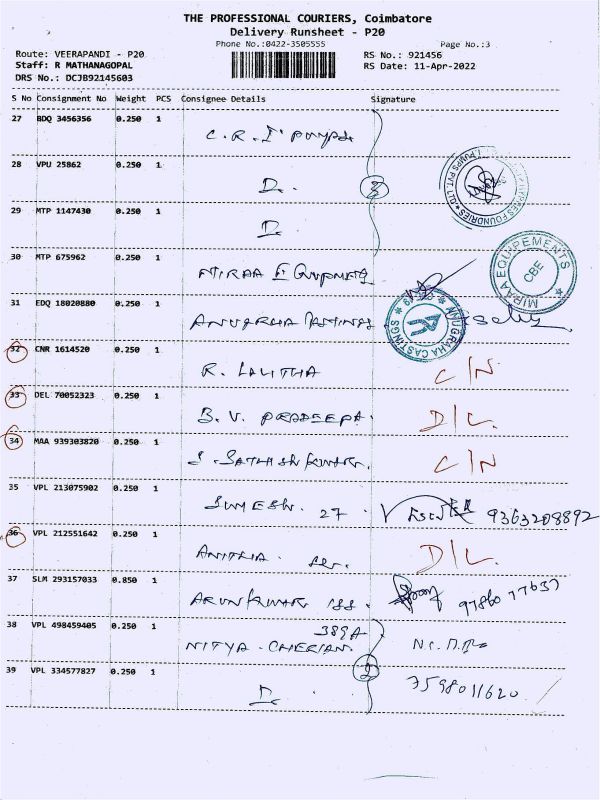 THE PROFESSIONAL COURIERS, Coimbatore
Delivery Runsheet - P20
Phone No.:0422-3505555
Page No.:3
Route: VEERAPANDI - P20
RS No.: 921456
Staff: R MATHANAGOPAL
RS Date: 11-Apr-2022
DRS No.: DCJB92145603
S No Consignment No Weight PCS Consignee Details Signature
27 BDQ 3456356 0.250 1 C.R.I Pumps
28 VPU 25862 0.250 1 D. 3
29 MTP 1147430 0.250 1 D.
30 MTP 675962 0.250 1 MIRAA
MIRAA EQUIPEMENTS CBE
31 EDQ 18020880 0.250 1 ANUGRAHA
ANUGRAHA CASTINGS
32 CNR 1614520 0.250 1 R. LALITHA C/N
33 DEL 70052323 0.250 1 B. V. PRADEEPA. D/L.
34 MAA 939303820 0.250 1 S. SATHISHKUMAR. C/N
35 VPL 213075902 0.250 1 SUMESH. 27. 9363208892
36 VPL 212551642 0.250 1 ANITHA. D/L.
37 SLM 293157033 0.850 1 ARUNKUMAR 97860 77637
38 VPL 498459405 0.250 1 NITYA. CHERIAN 389A
39 VPL 334577827 0.250 1 D. 2 7598011620